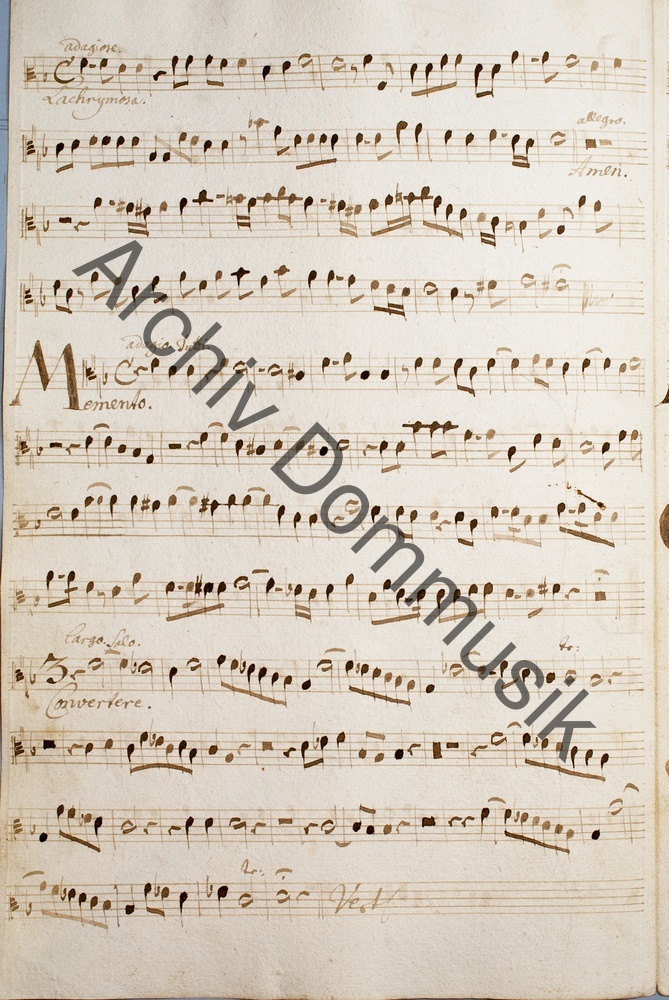 adagiose.
Lachrymosa.
allegro.
Amen.
adagio. Tutti
Memento.
largo. Solo.
tr:
Convertere.
tr:
Archiv Dommusik